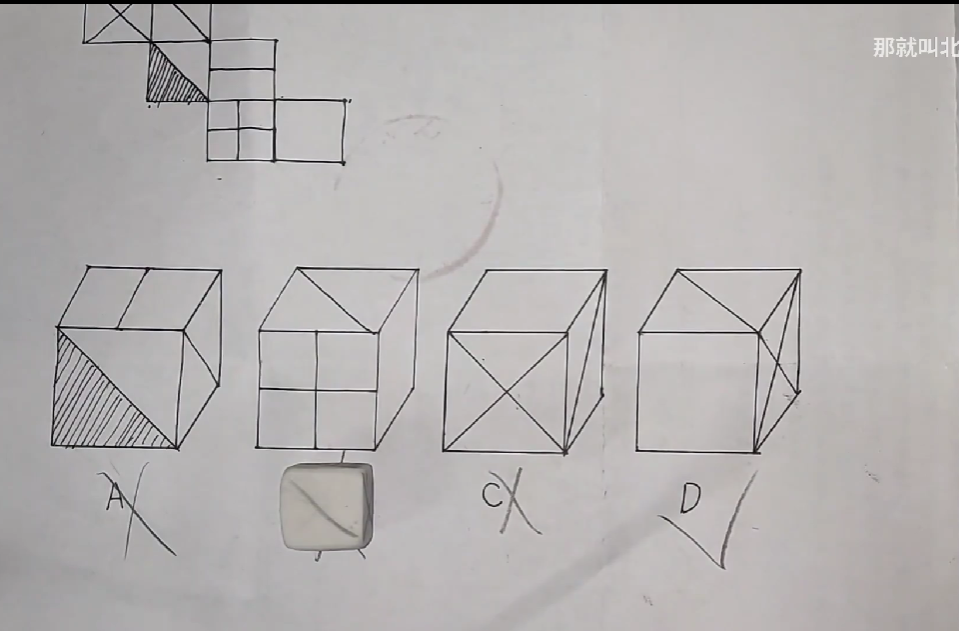 那就叫北
A
C
D